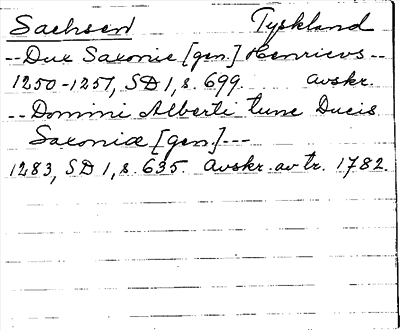 Sachsen Tyskland
-- Dux Saxonie [gen.] Henricus --
1250-1251, SD 1, s. 699. Avskr.
-- Domini Alberti tunc Ducis
Saxoniæ [gen.] ---
1283, SD 1, s. 635. Avskr. av tr. 1782.